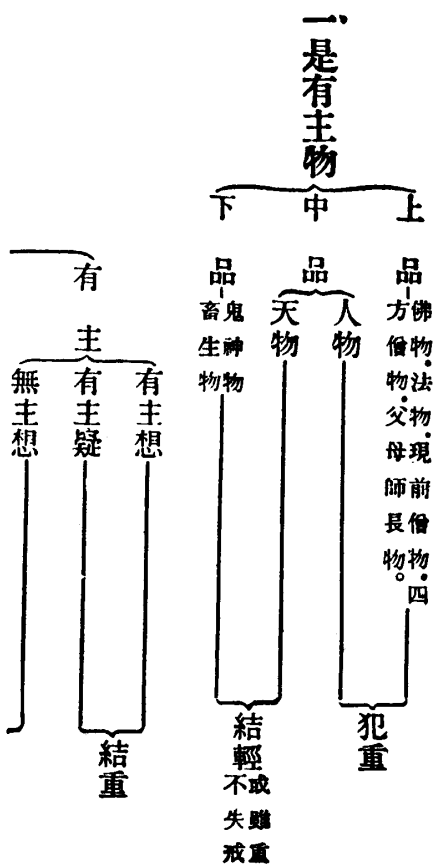 一、是有主物
上品
佛物．法物．現前僧物．四
方僧物．父母師長物。
中品
人物
天物
下品
鬼神物
畜生物
犯重
結輕
或雖重
不失戒
有主
有主想
有主疑
無主想
結重